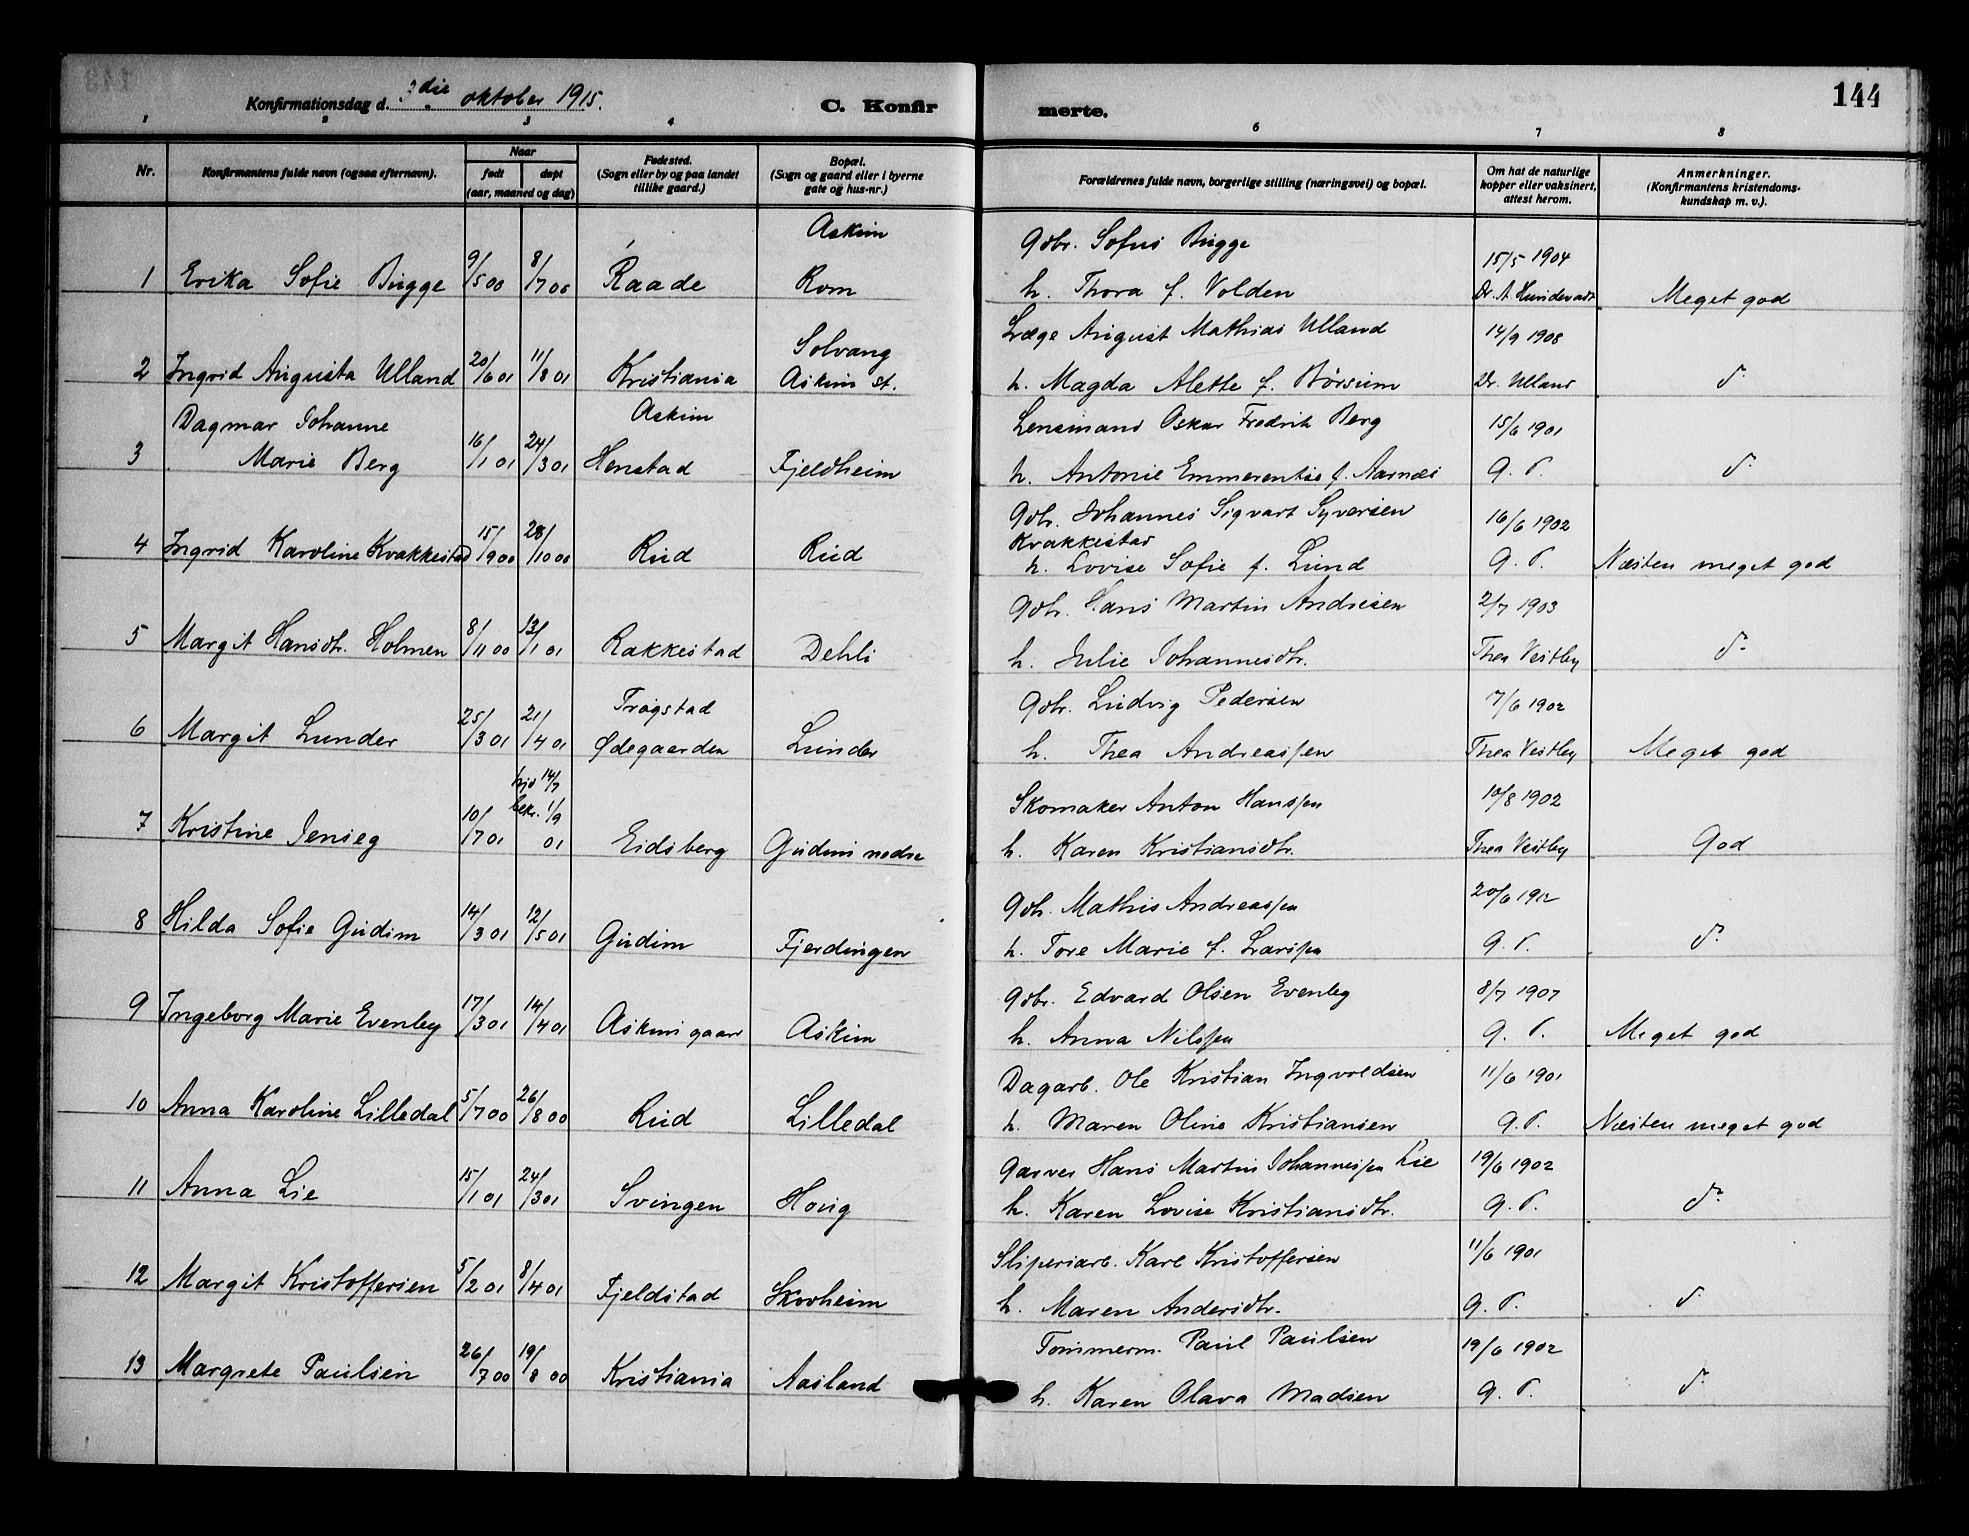 144
Konfirmationsdag d. 3die oktober 1915.
C. Konfirmerte.
1 2 3 4 6 7 8
Nr.
Konfirmantens fulde navn (ogsaa efternavn).
Naar
født døpt
(aar, maaned og dag)
Fødested.
(Sogn eller by og paa landet
tillike gaard.)
Bopæl.
(Sogn og gaard eller i byerne
gate og hus-nr.)
Forældrenes fulde navn, borgerlige stilling (næringsvei) og bopæl.
Om hat de naturlige
kopper eller vaksinert,
attest herom.
Anmerkninger.
(Konfirmantens kristendoms-
kundskap m. v.).
Askim Gbr. Sofus Bugge 15/5 1904
1 Erika Sofie Bugge 9/5 00 8/7 00 Raade Rom h. Thora f. Volden Meget god
Solvang Læge August Mathias Ulland 14/9 1908
2 Ingrid Augusta Ulland 20/6 01 11/8 01 Kristiania Askim st. h. Magda Alette f. Børsum Dr. Ulland d.
Dagmar Johanne Askim Lensmand Oskar Fredrik Berg 15/6 1901
3 Marie Berg 16/1 01 24/3 01 Henstad Fjeldheim h. Antonie Emmerentse f. Aarnæs d.
Gbr. Johannes Sigvart Syversen 16/6 1902
Kvakkestad
4 Ingrid Karoline Kvakkestad 15/9 00 28/10 00 Rud Rud h. Lovise Sofie f. Lund Næsten meget god
Gbr. Hans Martin Andresen 2/7 1903
5 Margit Hansdtr. Holmen 8/11 00 13/1 01 Rakkestad Dehli h. Julie Johannesdtr. Thea Vestby d.
Trøgstad Gbr. Ludvig Pedersen 7/6 1902
6 Margit Lunder 25/3 01 21/4 01 Ødegaarden Lunder h. Thea Andreassen Thea Vestby Meget god
hjd 14/7
bekr. 1/9 Skomaker Anton Hanssen 10/8 1902
7 Kristine Jenseg 10/7 01 01 Eidsberg Gudim nedre h. Karen Kristiansdtr. Thea Vestby God
Gbr. Mathis Andreassen
8 Hilda Sofie Gudim 14/3 01 12/5 01 Gudim Fjerdingen h. Tore Marie f. Larssen d.
Gbr. Edvard Olsen Evenby 8/7 1907
9 Ingeborg Marie Evenby 17/3 01 14/4 01 Askim gaard Askim h. Anna Nilssen Meget god
Dagarb. Ole Kristian Ingvoldsen 11/6 1901
10 Anna Karoline Lilledal 5/7 00 26/8 00 Rud Lilledal h. Maren Oline Kristiansen Næsten meget god
Garver Hans Martin Johannessen Lie 19/6 1902
11 Anna Lie 15/1 01 24/3 01 Svingen Houg h. Karen Lovise Kristiansdtr. do
Sliperiarb. Karl Kristoffersen 11/6 1901
12 Margit Kristoffersen 5/2 01 8/4 01 Fjeldstad Skovheim h. Maren Andersdtr. d.
Tømmerm. Paul Paulsen 19/6 1902
13 Margrete Paulsen 26/7 00 19/8 00 Kristiania Aasland h. Karen Olava Madsen d.